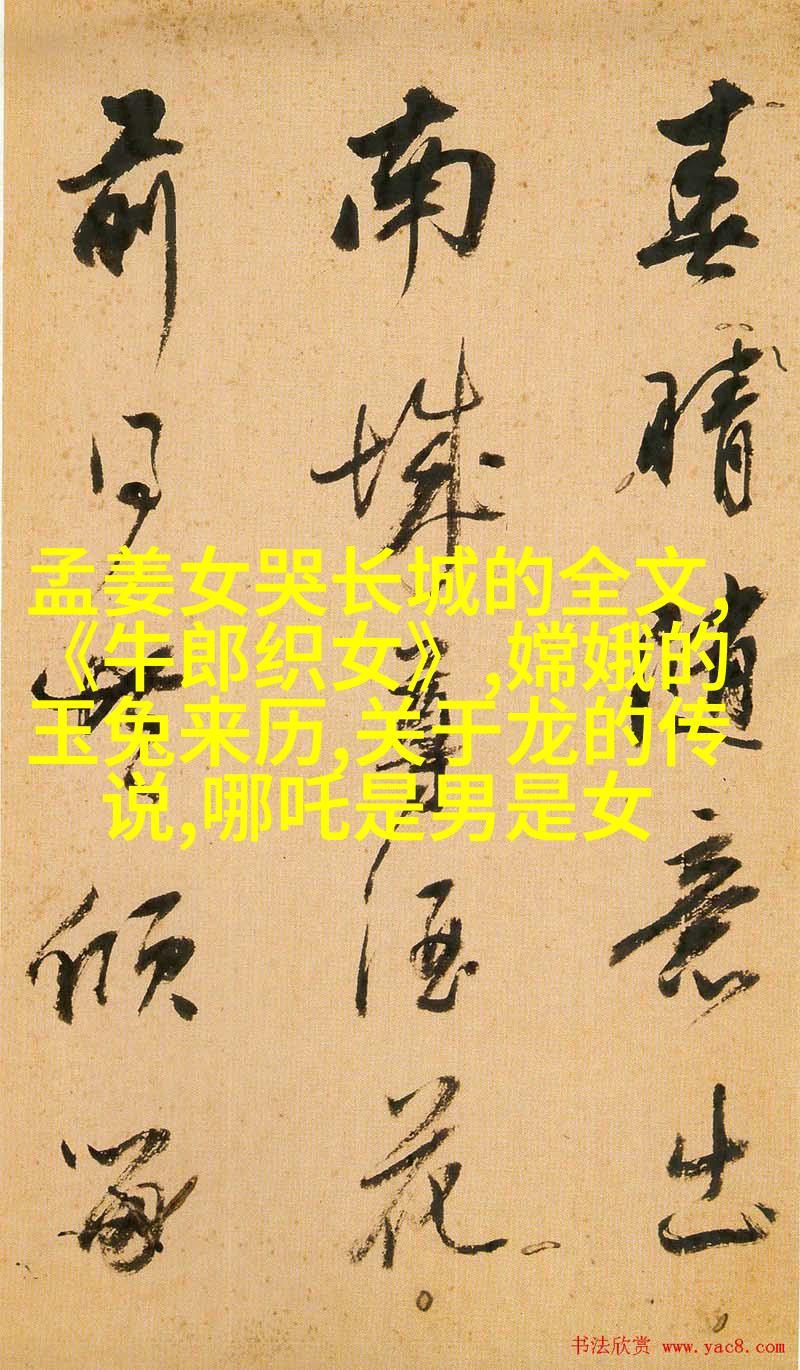 春晴随意出
南城尊酒花
前同此倾留
孟姜女哭长城的全文,
《牛郎织女》,嫦娥的
玉兔来历,关于龙的传
说,哪吒是男是女
书法欣赏 www.yac8.com